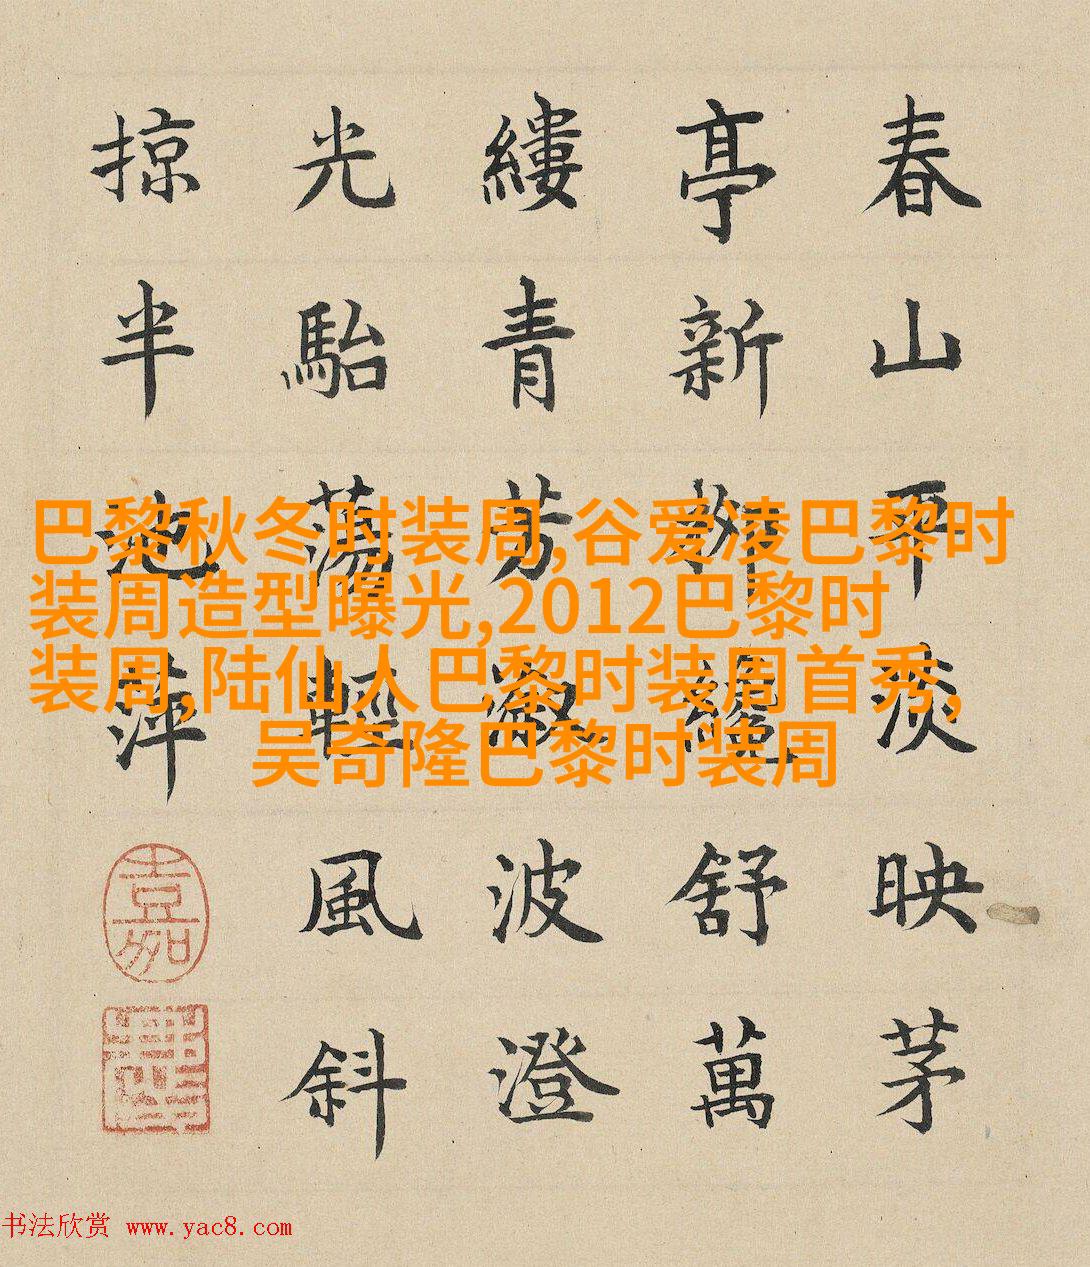 春山平淡映茅
亭新柳纔舒萬
縷青芳波澄
光駘蕩輕風斜
掠半池萍
嘉
巴黎秋冬时装周,谷爱凌巴黎时
装周造型曝光,2012巴黎时
装周,陆仙人巴黎时装周首秀,
吴奇隆巴黎时装周
书法欣赏 www.yac8.com